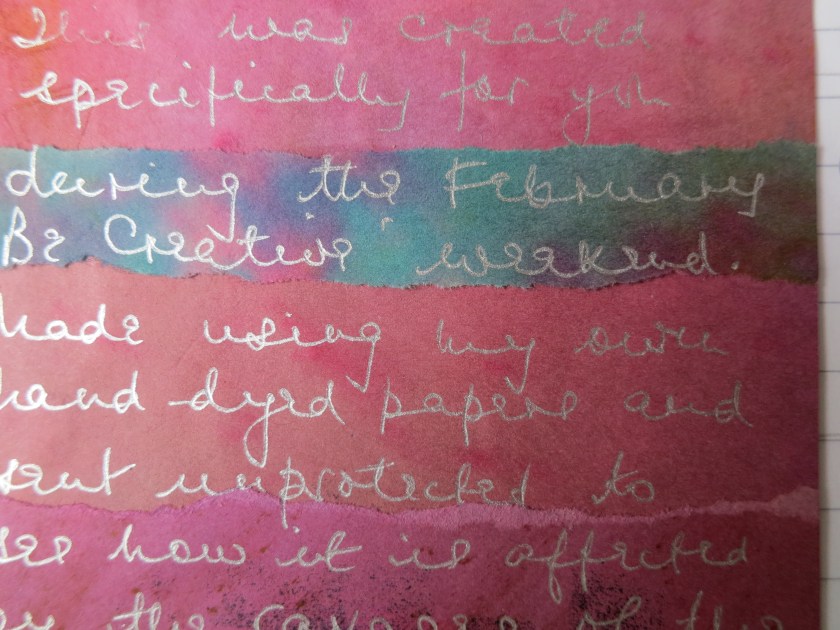 This was created
specifically for you
during the February
"Be Creative" weekend.
Made using my own
hand-dyed papers and
sent unprotected to
see how it is affected
by the ravages of the